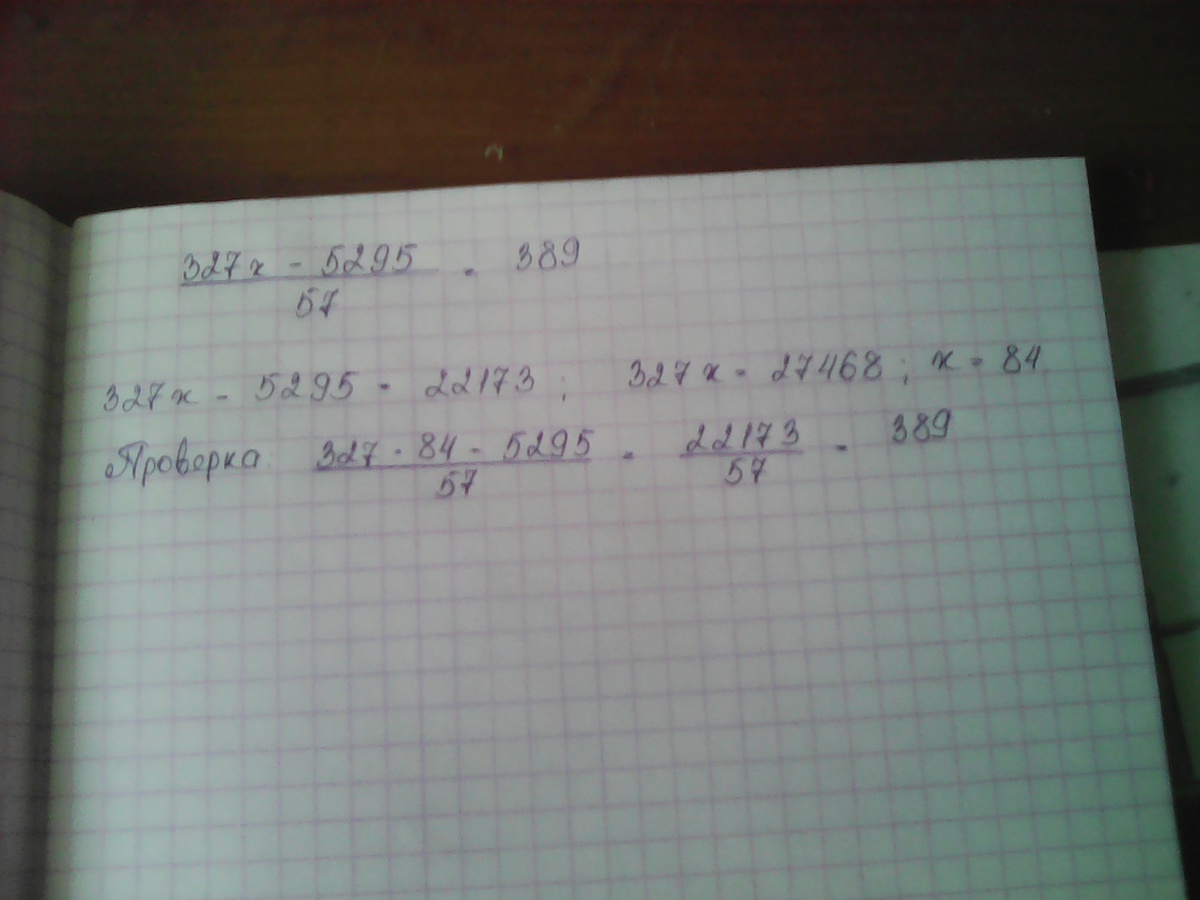 327x - 5295 = 389
57
327x - 5295 = 22173 ; 327x = 27468 ; x = 84
Проверка 327 · 84 - 5295 = 22173 = 389
57 57